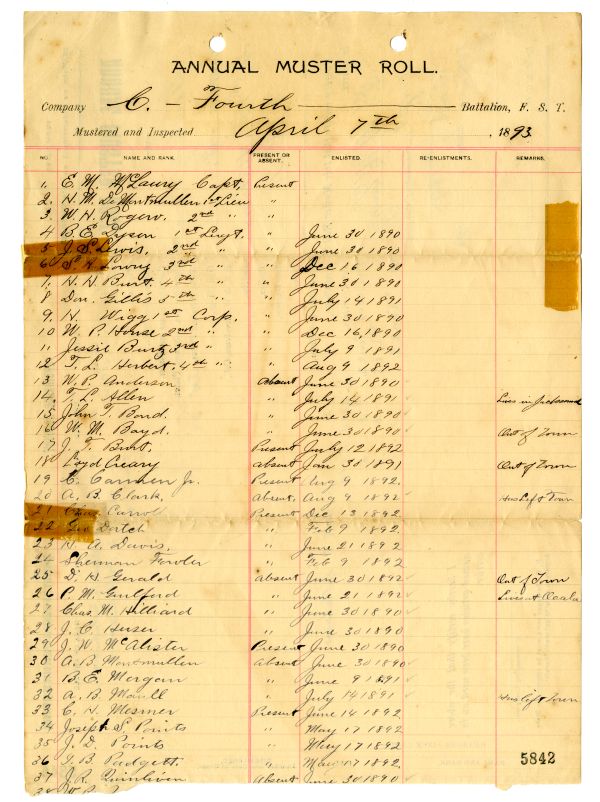 ANNUAL MUSTER ROLL.
Company C. - Fourth Battalion, F. S. T.
Mustered and Inspected April 7th, 1893
NO. NAME AND RANK. PRESENT OR ABSENT. ENLISTED. RE-ENLISTMENTS. REMARKS.
1. E. M. McLaury Capt. Present
2. H. M. De Montmullen 1st Lieu "
3. W. H. Rogero, 2nd " "
4 B. E. Dyson 1st Sergt. " June 30 1890
5 J. S. Lewis, 2nd " " June 30 1890
6 Lowry 3rd " " Dec 16 1890
7. H. H. Burt, 4th " " June 30 1890
8 Don. Gillis 5th " " July 14 1891
9 H. Wigg 1st Corp. " June 30 1890
10 W. P. House 2nd " " Dec 16, 1890
11 Jessie Burtz 3rd " " July 9 1891
12 T. L. Herbert, 4th " " Aug 9 1892
13 W. P. Anderson absent June 30 1890
14. T. L. Allen " July 14 1891 Lives in
15 John T. Bond. " June 30 1890
16 W. M. Boyd. " June 30 1890 Out of Town
17 J. T. Burt, Present July 12 1892
18 Loyd Creary absent Jan 30 1891 Out of Town
19 C. Carmen Jr. Present Aug 9 1892
20 A. B. Clark, Absent, Aug 9 1892 Has Left Town
21 Chas. Carroll Present Dec 13 1892
22 Geo Dortch " Feb 9 1892
23 H. A. Davis, " June 21 1892
24 Sherman Fowler " Feb 9 1892
25 D. H. Gerald Absent June 30 1892 Out of Town
26 P. M. Gulford " June 21 1892 Lives at Ocala
27 Chas. M. Hilliard " June 30 1890
28 J. C. " June 30 1890
29 J. W. McAlister Present June 30 1890
30 A. B. Montmullen Absent June 30 1890
31 B. E. Morgan " June 9 1891
32 A. B. Maull " July 14 1891 Has left Town
33 C. H. Mesmer Present June 14 1892
34 Joseph S. Points " May 17 1892
35 J. D. Points " May 17 1892
36 J. B. Padgett. " May 17 1892
37 J. R. Quinliven Absent June 30 1890
38
5842